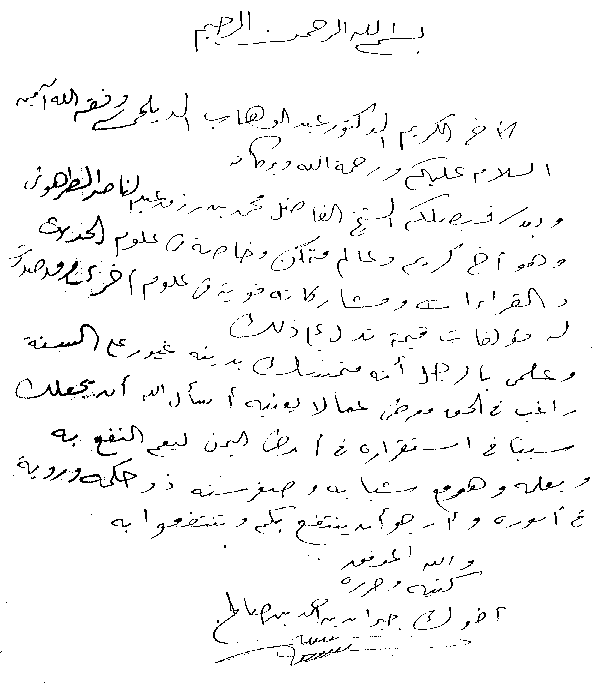 بسم الله الرحمن الرحيم
الأخ الكريم الدكتور عبد الوهاب الديلمي وفقه الله آمين
السلام عليكم ورحمة الله وبركاته
وبعد فيصلكم الشيخ الفاضل محمد بن رزق عبد الناصر الطرهوني
وهو أخ كريم وعالم متمكن وخاصة في علوم الحديث
والقراءات ومشاركاته قوية في علوم أخرى وقد صدرت
له مؤلفات قيمة تدل على ذلك
وعلمي بالرجل أنه متمسك بدينه غيور على السنة
راغب في الحق معرض عما لا يعنيه أسأل الله أن يجعلك
سببا في استقراره في أرض اليمن ليعم النفع به
وبعلمه وهو مع شبابه وصغر سنه ذو حكمة وروية
في أموره وأرجو أن ينتفع بكم وتنتفعوا به
والله الموفق
كتبه وحرره
أخوك عبد الله بن أحمد بن صالح